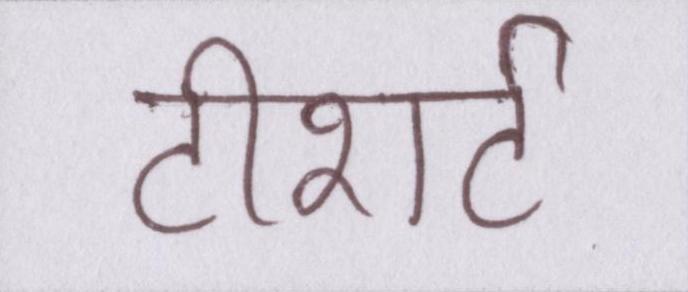 टीशर्ट